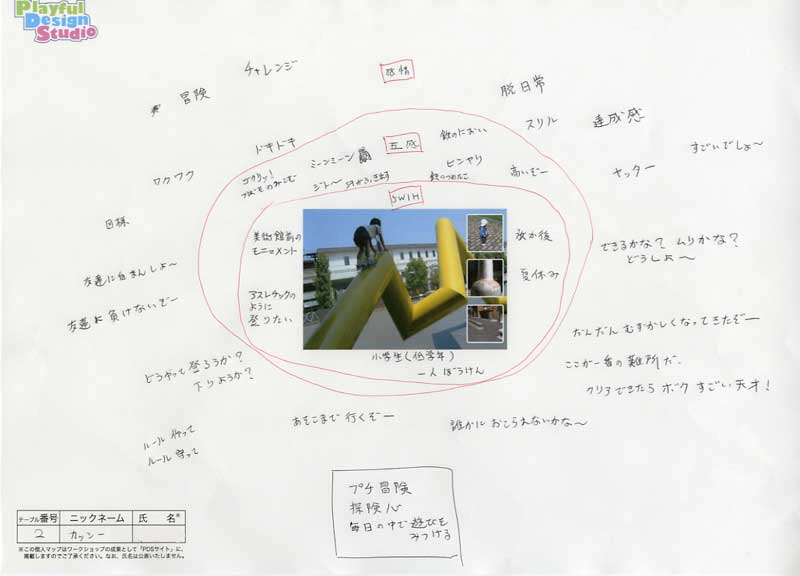 Playful
Design
Studio
チャレンジ
感情
脱日常
冒険
スリル
達成感
ドキドキ
五感
鉄のにおい
ミーンミーン
すごいでしょ〜
ワクワク
ゴクリッ!
つばをのみこむ
ジトー
汗がふき出す
ヒンヤリ
鉄のつめたさ
高いぞー
ヤッター
5W1H
目標
美術館前の
モニュメント
放課後
できるかな? ムリかな?
どうしよ〜
友達に自まんしよ〜
夏休み
アスレチックの
ように
登りたい
友達に負けないぞー
だんだんむずかしくなってきたぞー
小学生(低学年)
一人ぼうけん
どうやって登ろうか?
下りようか?
ここが一番の難所だ。
クリアできたらボクすごい天才!
あそこまで行くぞー
誰かにおこられないかな〜
ルール作って
ルール守って
プチ冒険
探険心
毎日の中で遊びを
みつける
テーブル番号 ニックネーム 氏 名*
2 カッシー
※この個人マップはワークショップの成果として「PDSサイト」に、
掲載しますのでご了承ください。なお、氏名は公表いたしません。